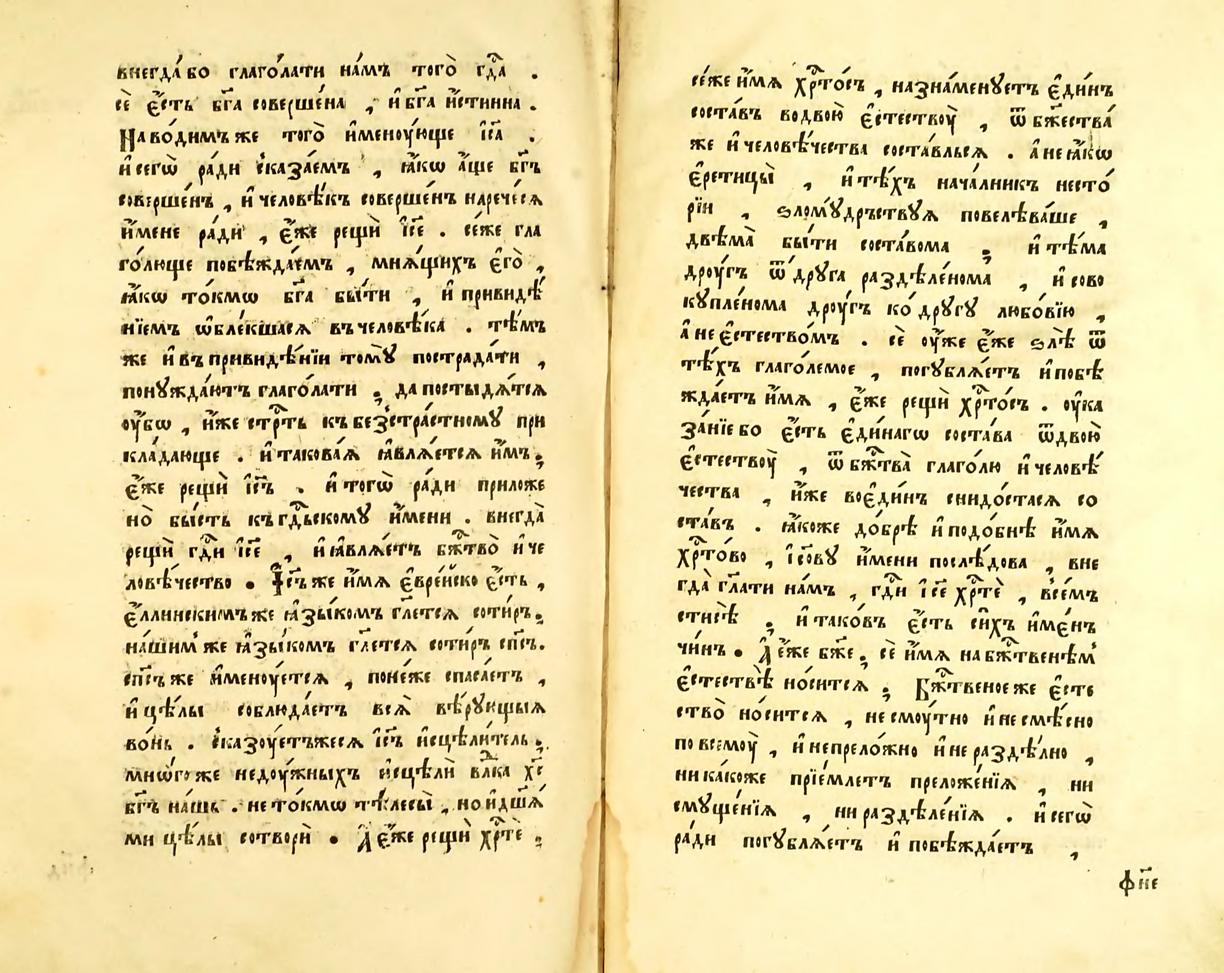 внегда́ бо глаго́лати на́мъ того̀ гдⷭ҇а .
сѐ є҆́сть бг҃а соверше́на , и҆ бг҃а и҆́стинна .
На во́димъ же того̀ и҆меноу́юще і҆с҃а .
и҆ сегѡ̀ ра́ди ска́заемъ , ꙗ҆́кѡ а҆́ще бг҃ъ
соверше́нъ , и҆ человѣ́къ соверше́нъ нарече́сѧ
и҆́мене ра́ди , є҆́же рещѝ і҆с҃е . се́же гла
го́люще побѣжда́емъ , мнѧ́щихъ є҆го̀ ,
ꙗ҆́кѡ то́кмѡ бг҃а бы́ти , и҆ привидѣ́
нїемъ ѡ҆бле́кшасѧ въ человѣ́ка . тѣ́мъ
же и҆ въ привидѣ́нїи томꙋ̀ пострада́ти ,
понꙋжда́ютъ глаго́лати ; да постыдѧ́тсѧ
оу҆́бѡ , и҆́же стрⷭ҇ть къ безстра́стномꙋ при
кла́дающе . и҆ такова́ѧ ꙗ҆влѧ́етсѧ и҆́мъ ;
є҆́же рещѝ і҆с҃ъ . и҆ тогѡ̀ ра́ди приложе
но̀ бы́сть къ гдⷭ҇ьскомꙋ и҆́мени . внегда̀
рещѝ гдⷭ҇и і҆с҃е , и҆ ꙗ҆влѧ́етъ бж҃тво̀ и҆ че
ловѣ́чество • І҆с҃ъ же и҆́мѧ є҆вре́йско є҆́сть ,
є҆́ллинскимъ же ꙗ҆зы́комъ гл҃етсѧ соти́ръ ;
на́шим же ꙗ҆зы́комъ гл҃етсѧ соти́ръ сп҃съ .
сп҃съ же и҆менꙋ́етсѧ , поне́же спаса́етъ ,
и҆ цѣ́лы соблюда́етъ всѧ̀ вѣ́рꙋющыѧ
во́нь . ска́зоуетъжесѧ і҆с҃ъ и҆сцѣли́тель ;
мнѡ́го же недоу́жныхъ и҆сцѣлѝ влⷣка хс҃
бг҃ъ на́шъ . не то́кмѡ тѣлесы̀ , но и҆ дш҃а́
ми цѣ́лы сотворѝ • А҆ є҆́же рещѝ хрⷭ҇тѐ ;
се́же и҆́мѧ хрⷭ҇то́съ , назнаменꙋетъ є҆ди́нъ
соста́въ во двою̀ є҆стествоу̀ , ѿ бж҃ества́
же и҆ человѣ́чества соста́вльсѧ . а҆ не ꙗ҆́кѡ
є҆ретицы̀ , и҆ тѣ́хъ нача́лникъ несто́
рїи , ѕломꙋ́дрьствꙋѧ повелѣва́ше ,
двѣма̀ бы́ти соста́вома ; и҆ тѣ́ма
дроу́гъ ѿ дрꙋга раздѣле́нома , и҆ сово
кꙋпле́нома дроу́гъ ко дрꙋгꙋ любо́вїю ,
а҆ не є҆стество́мъ . сѐ оу҆́же є҆́же ѕлѣ̀ ѿ
тѣ́хъ глаго́лемое , погꙋблѧ́етъ и҆ побѣ
жда́етъ и҆́мѧ , є҆́же рещѝ хрⷭ҇то́съ . оу҆ка
за́нїе бо є҆́сть є҆ди́нагѡ соста́ва ѿ двою̀
є҆стествоу̀ , ѿ бжⷭ҇тва̀ глаго́лю и҆ человѣ́
чества , и҆́же во є҆ди́нъ снидо́стасѧ со
ста́въ . ꙗ҆́коже до́брѣ и҆ подо́бнѣ и҆́мѧ
хрⷭ҇то́во , і҆с҃овꙋ и҆́мени послѣ́дова , вне
гда̀ гл҃ати на́мъ , гдⷭ҇и і҆с҃е хрⷭ҇тѐ , все́мъ
стисѣ̀ ; и҆ тако́въ є҆́сть си́хъ и҆ме́нъ
чи́нъ • А҆ є҆́же бж҃е ; сѐ и҆́мѧ на бжⷭ҇твенѣмъ
є҆стествѣ̀ но́ситсѧ ; Бжⷭ҇твеное же є҆сте
ство̀ но́ситсѧ , не смоу́тно и҆ не смѣ́сно
по всемоу̀ , и҆ непрело́жно и҆ не раздѣ́лно ,
ника́коже прїе́млетъ преложе́нїѧ , ни
смꙋще́нїѧ , ни раздѣле́нїѧ . и҆ сегѡ̀
ра́ди погꙋблѧ́етъ и҆ побѣжда́етъ ,
фн҃е